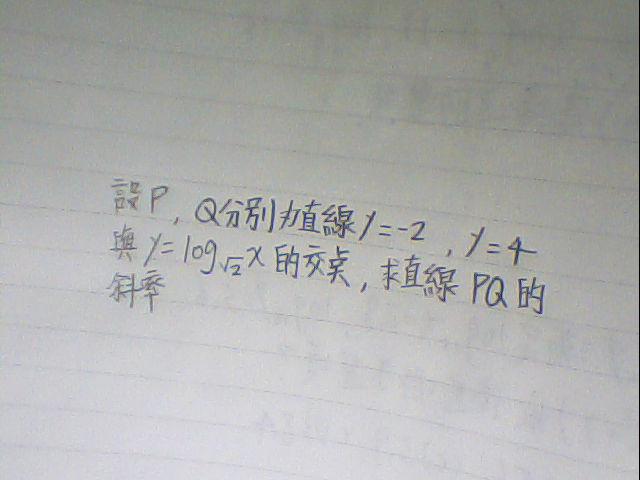 設P，Q分別為直線y=-2，y=4
與y=log√2 x的交点，求直線PQ的
斜率